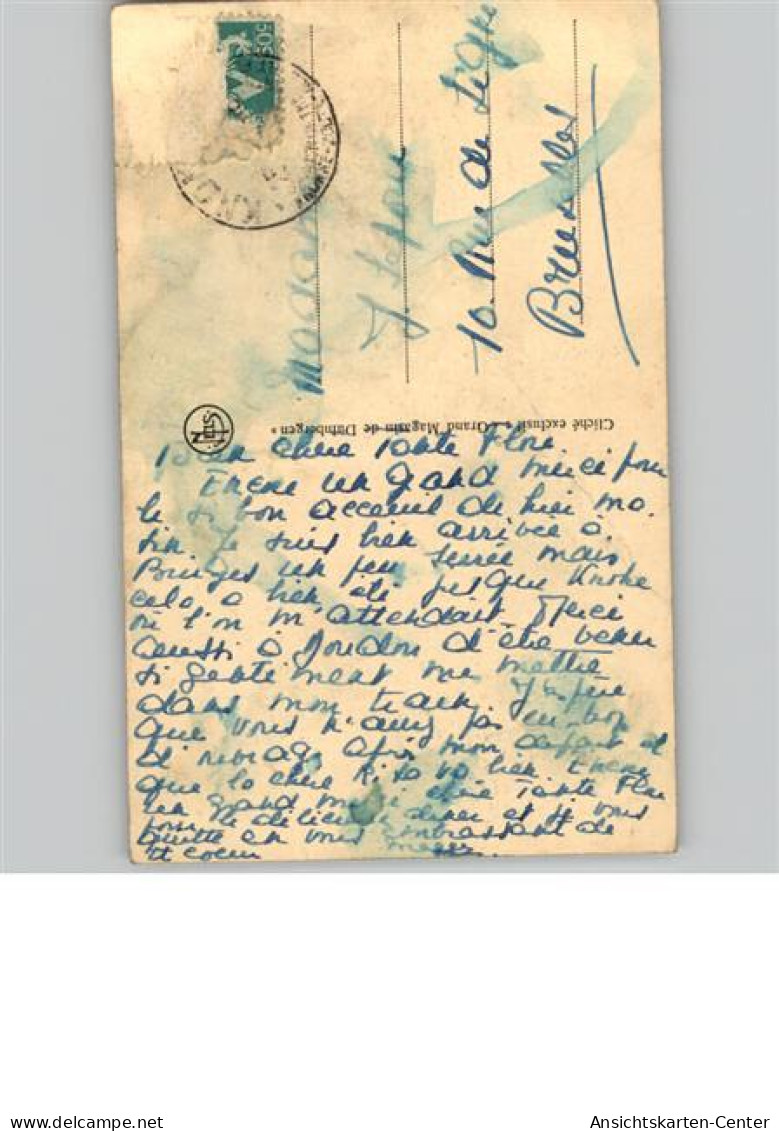 50
KNO
Madame
10. Rue de Ligne
Bruxelles
Cliché exclusif « Grand Magasin de Duinbergen »
chère Tante Flore.
Encore un grand merci pour
le si bon accueil de hier ma
tin je suis bien arrivée à
Bruges un peu serrée mais
cela a bien été jusque Knoke
où l'on m'attendait. Merci
aussi à Doudou d'être venu
si gentiment me mettre
dans mon train. J'espère
que vous n'avez pas eu
après mon départ et
que la chère va bien. Encore
un grand merci chère Tante Flore
pour le délicieux diner et je vous
quitte en vous embrassant de
tt coeur
Ansichtskarten-Center